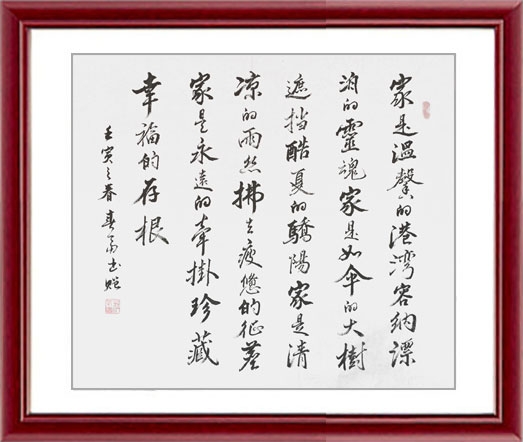 家是温馨的港湾容纳漂
泊的靈魂家是如伞的大樹
遮挡酷夏的驕陽家是清
凉的雨丝拂去疲惫的征塵
家是永遠的牵掛珍藏
幸福的存根
壬寅之春